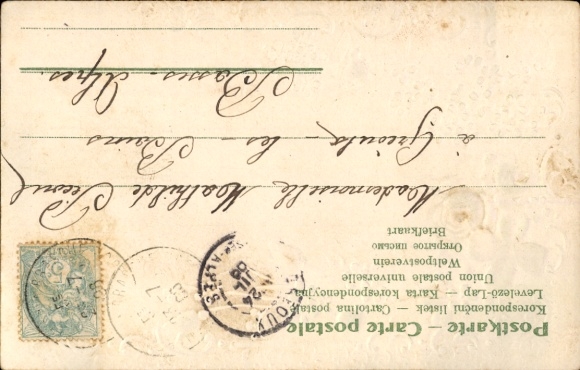 Postkarte – Carte postale
Korespondenční listek – Cartolina postale
Levelező-Lap – Karta korespondencyjna
Union postale universelle
Weltpostverein
Открытое письмо
Briefkaart
Mademoiselle Mathilde
à Gréoulx-les-Bains
Basses-Alpes.
5
24
08
ALPES